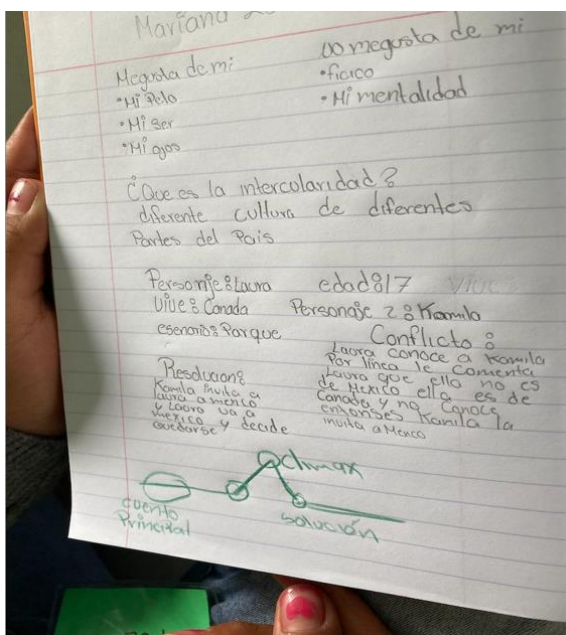 Mariana
Megusta de mi
• Mi Pelo
• Mi ser
• Mi ojos
No megusta de mi
• ficico
• Mi mentalidad
¿Que es la intercolaridad?
diferente cultura de diferentes
Partes del Pais
Personje: Laura edad: 17 Vive
Vive: Canada Personaje 2: Kamila
esenario: Parque
Conflicto:
Laura conoce a Kamila
Por línea le comenta
Laura que ella no es
de Mexico ella es de
Canada y no conoce
entonses Kamila la
invita a Mexico
Resolucion:
Kamila invita a
laura a mexico
y Laura va a
mexico y decide
quedarse
climax
cuento
Principal
solución